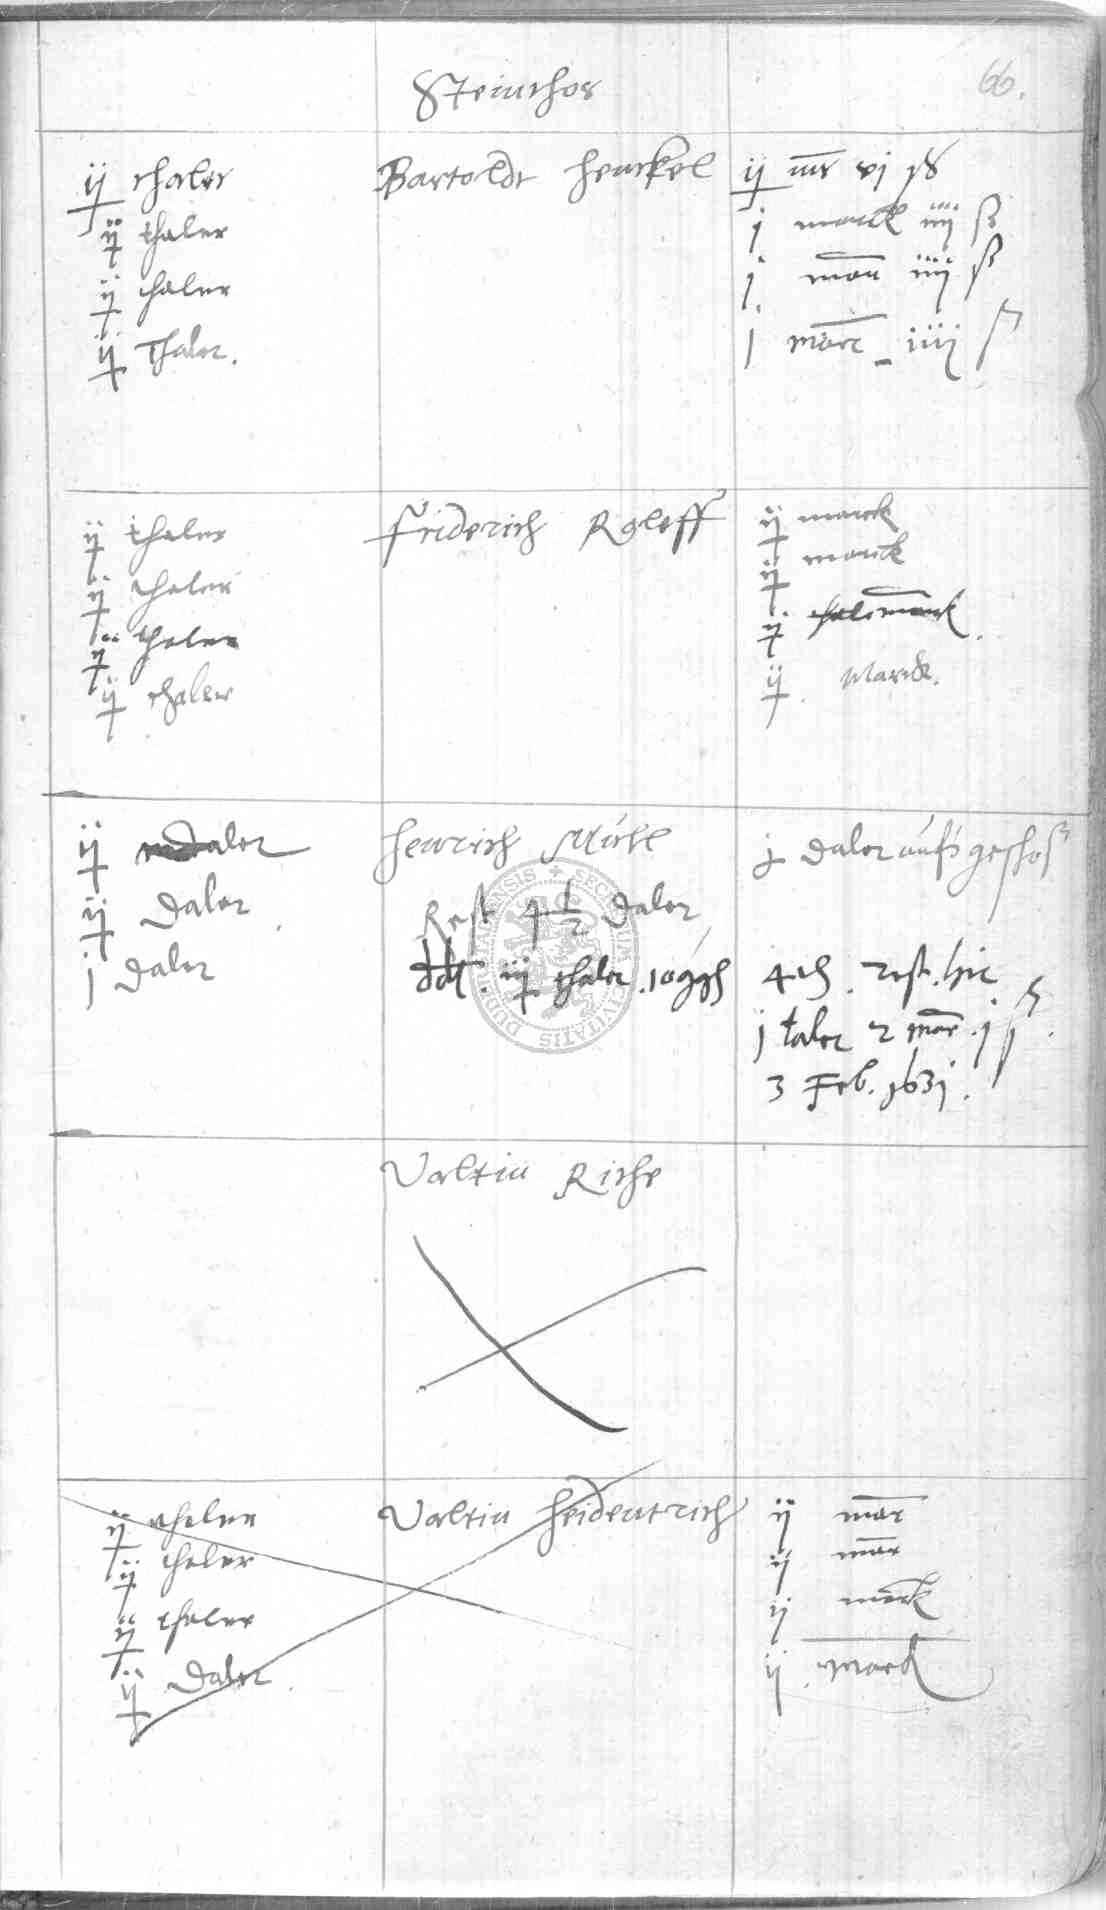 Steinthor
66.
ij thaler
ij thaler
ij thaler
ij Thaler.
Bartoldt Henckel
ij mr vj ß
j marck iiij ß
j marc iiij ß
j marc iiij ß
ij thaler
ij thaler
ij thaler
ij thaler
Friderich Roleff
ij marck
ij marck
ij marck.
ij Marck.
ij daler
ij Daler
j daler
Henrich
Rest 4 1/2 Daler
ddt. iij thaler. 10 ggl
j Daler auffs geschoß
rest. hic
j taler 2 mar. j ß.
3 Feb. 1631.
Valtin Riche
ij thaler
ij thaler
ij thaler
ij Daler
Valtin Heidentrich
ij mar
ij mar
ij marck
ij marck
SECRETUM CIVITATIS DUDERSTADENSIS